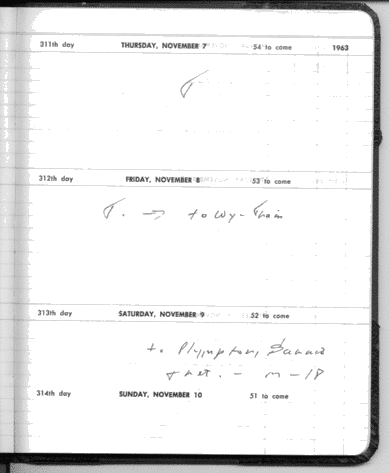 311th day THURSDAY, NOVEMBER 7 54 to come 1963
T
312th day FRIDAY, NOVEMBER 8 53 to come
T. → to Wy - Train
313th day SATURDAY, NOVEMBER 9 52 to come
to Plympton,
+ ret. - m - 18
314th day SUNDAY, NOVEMBER 10 51 to come